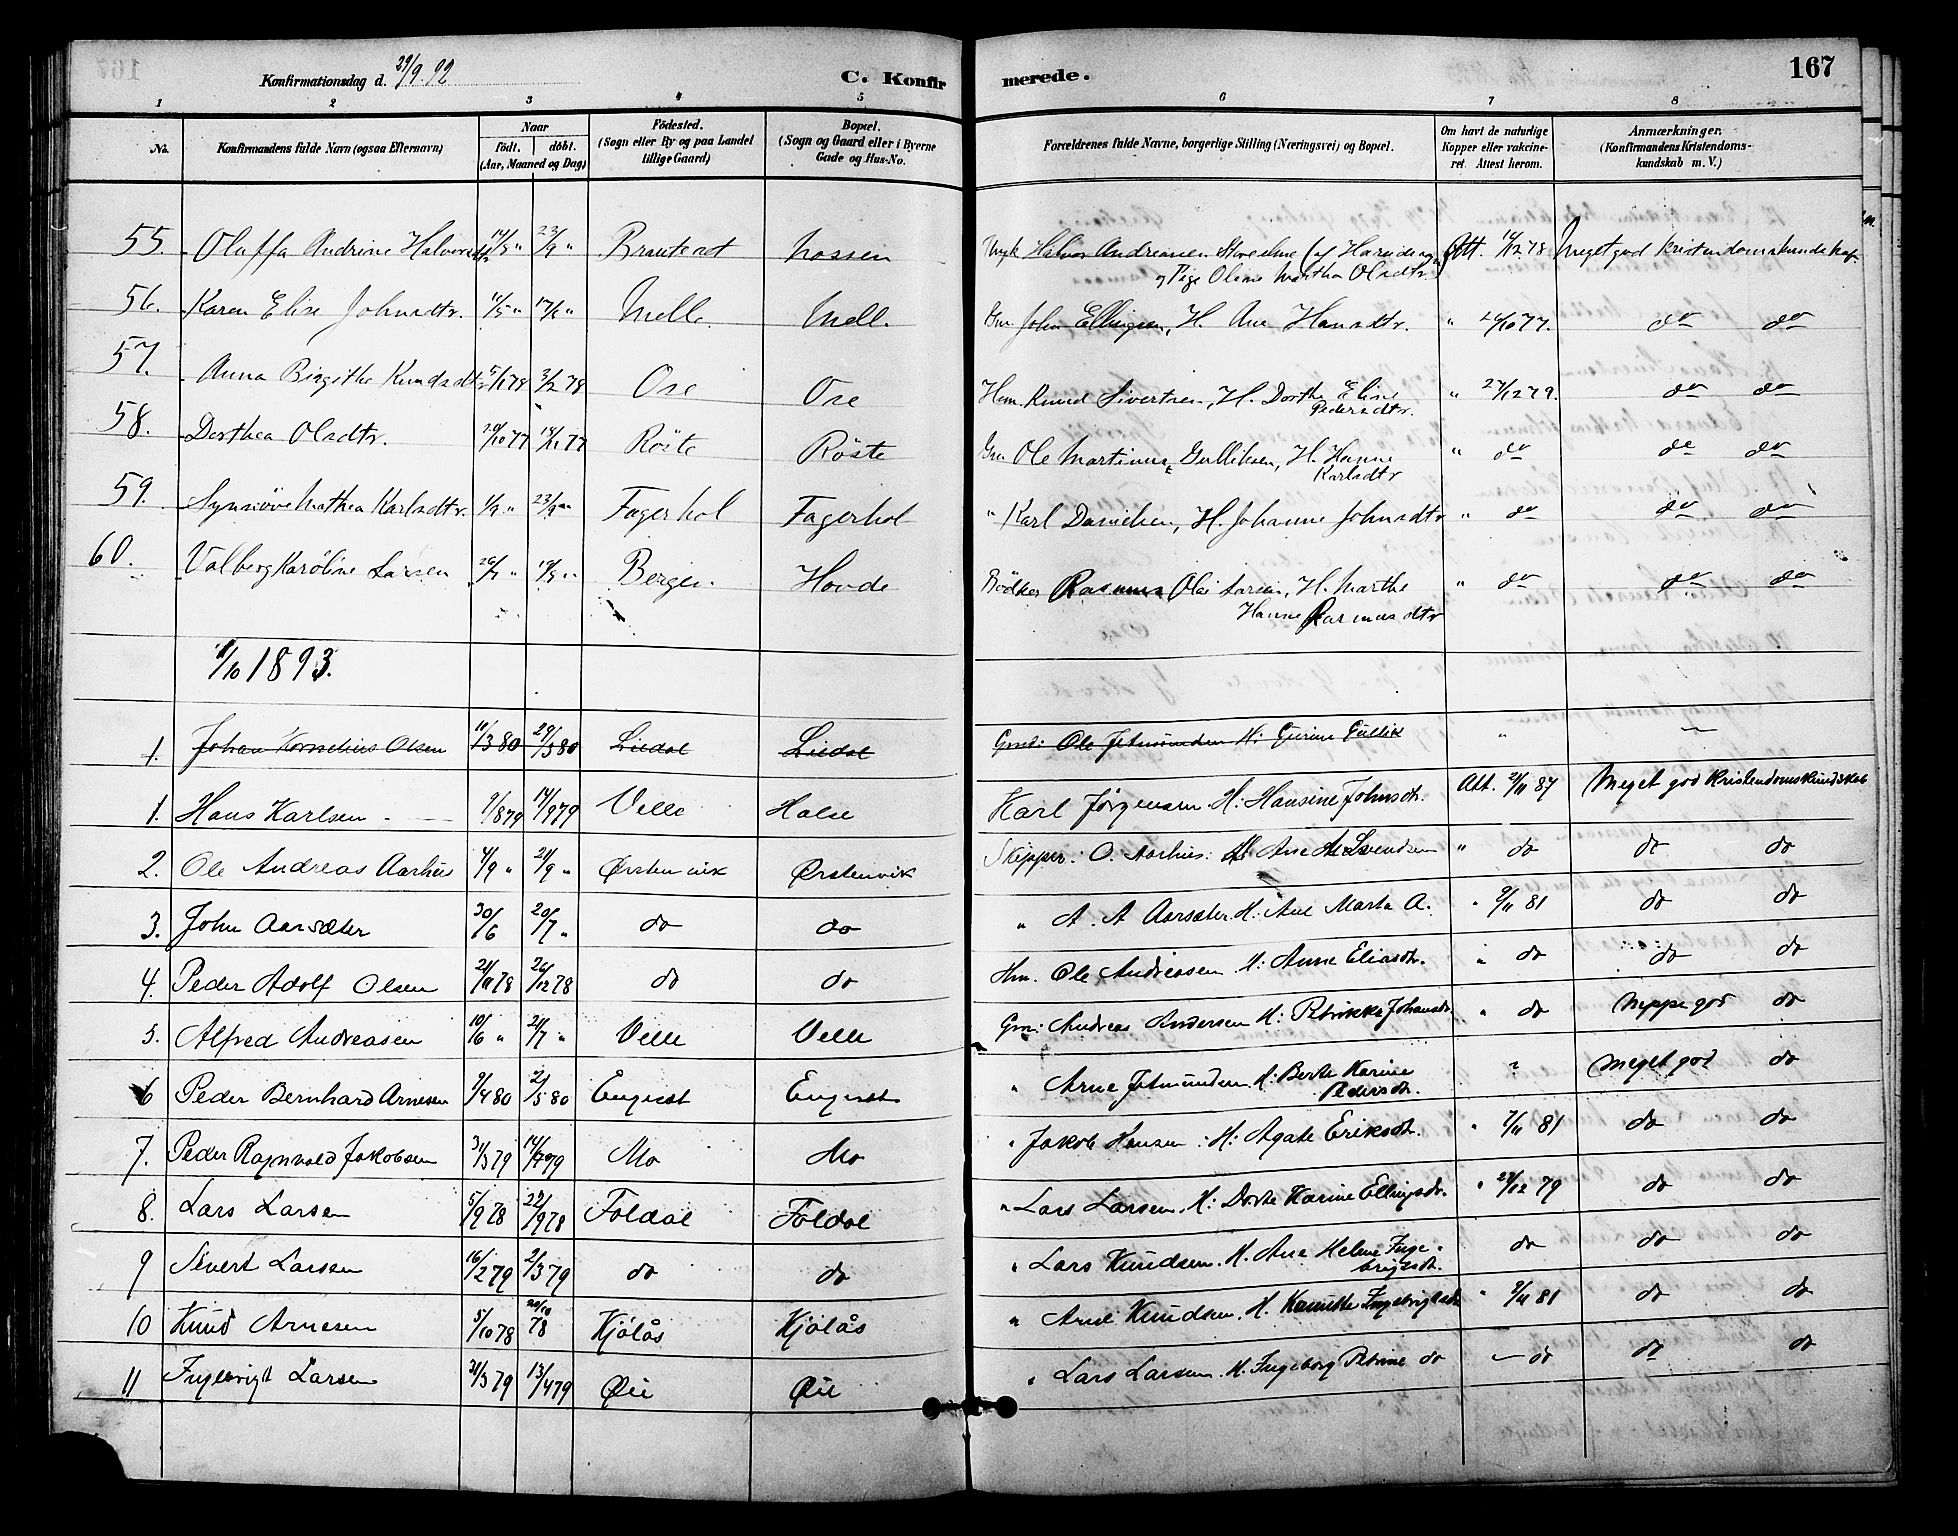 Konfirmationsdag d. 29/9. 92 C. Konfirmerede. 167
1 2 3 4 5 6 7 8
No. Konfirmandens fulde Navn (ogsaa Efternavn) Naar født. døbt. (Aar, Maaned og Dag) Födested. (Sogn eller By og paa Landet tillige Gaard) Bopæl. (Sogn og Gaard eller i Byerne Gade og Hus-No. Forældrenes fulde Navne, borgerlige Stilling (Næringsvei) og Bopæl. Om havt de naturlige Kopper eller vakcineret. Attest herom. Anmærkninger. (Konfirmandens Kristendomskundskab m. V.)
55. Oluffa Andrine Halvorsdtr 23/9 " Brauteset Ungk Halvor Andreassen Att. 12 78 Meget god Kristendomskundskab
og Pige Oline Martha Olsdtr.
56. Karen Elise Johnsdtr. 11/5 " Melle Mell. Gm. John Ellingsen, H. Ane Hansdtr. " 26/10 77. do do
57. Anna Birgithe Knudsdtr 3/2 78 Ose Ose Hm. Knud Sivertsen, H. Dorthe Elise Pedersdtr. " 27/12 79. do do
58. Dorthea Olsdtr. 29/10 77 Röste Röste Gm Ole Martinus Gulliksen, H. Hanne Karlsdtr " do do do
59. Synnöve Mathea Karlsdtr. Fagerhol Fagerhol " Karl Danielsen, H. Johanne Johnsdtr " do do do
60. Valberg Karoline Larsen 26/7 " Bergen. Hovde Bödker Rasmus Olai Larsen, H. Marthe Hanne Rasmusdtr " do do do
1/10 1893.
1. Johan Kornelius Olsen 11/3 80 29/3 80 Liedal Liedal Gmd: Ole Jetmundsen H: Gurine Gullik "
1. Hans Karlsen 9/8 79 14/9 79 Velle Halse Karl Jørgensen H: Hansine Johnsdt. Att. 2/11 87 Meget god Kristendomskundskab
2. Ole Andreas Aarhus 4/9 " 21/9 " Ørstenvik Ørstenvik Skipper: O. Aarhus: H: Ane M. Svendsen " do do do
3. John Aarsæter 30/6 20/7 " do do " A. A Aarsæter H: Ane Marta A. " 9/11 81 do do
4. Peder Adolf Olsen 21/11 78 26/12 78 do do Hm. Ole Andreasen H: Anne Eliasdt. " do do do
5. Alfred Andreasen 10/6 " 21/7 " Velle Velle Gm: Andreas Andersen H: Petrikke Johansdt. " do neppe god do
6 Peder Bernhard Arnesen 9/4 80 2/5 80 Engeset Engeset " Arne Jetmundsen H: Berte Karine Pedersdt. ? Meget god do
7. Peder Ragnvald Jakobsen 31/3 79 14/4 79 Mo Mo " Jakob Hansen: H: Agate Eriksdt. " 7/11 81 do do
8. Lars Larsen 5/9 78 22/9 78 Foldal Foldal " Lars Larsen. H: Dorte Karine Ellingsdt. " 27/12 79 do do
9 Sivert Larsen 16/2 79 2/3 79 do do " Lars Knudsen. H. Ane Helene Ingebrigtsdt. do do do
10 Knud Arnesen 5/10 78 20/10 78 Kjölås Kjölås " Arne Knudsen. H. Ingebrigtsdt " 9/11 81 do do
11 Ingebrigt Larsen 21/3 79 13/4 79 Øie Øie " Lars Larsen. H. Ingeborg Petrine do — do do do